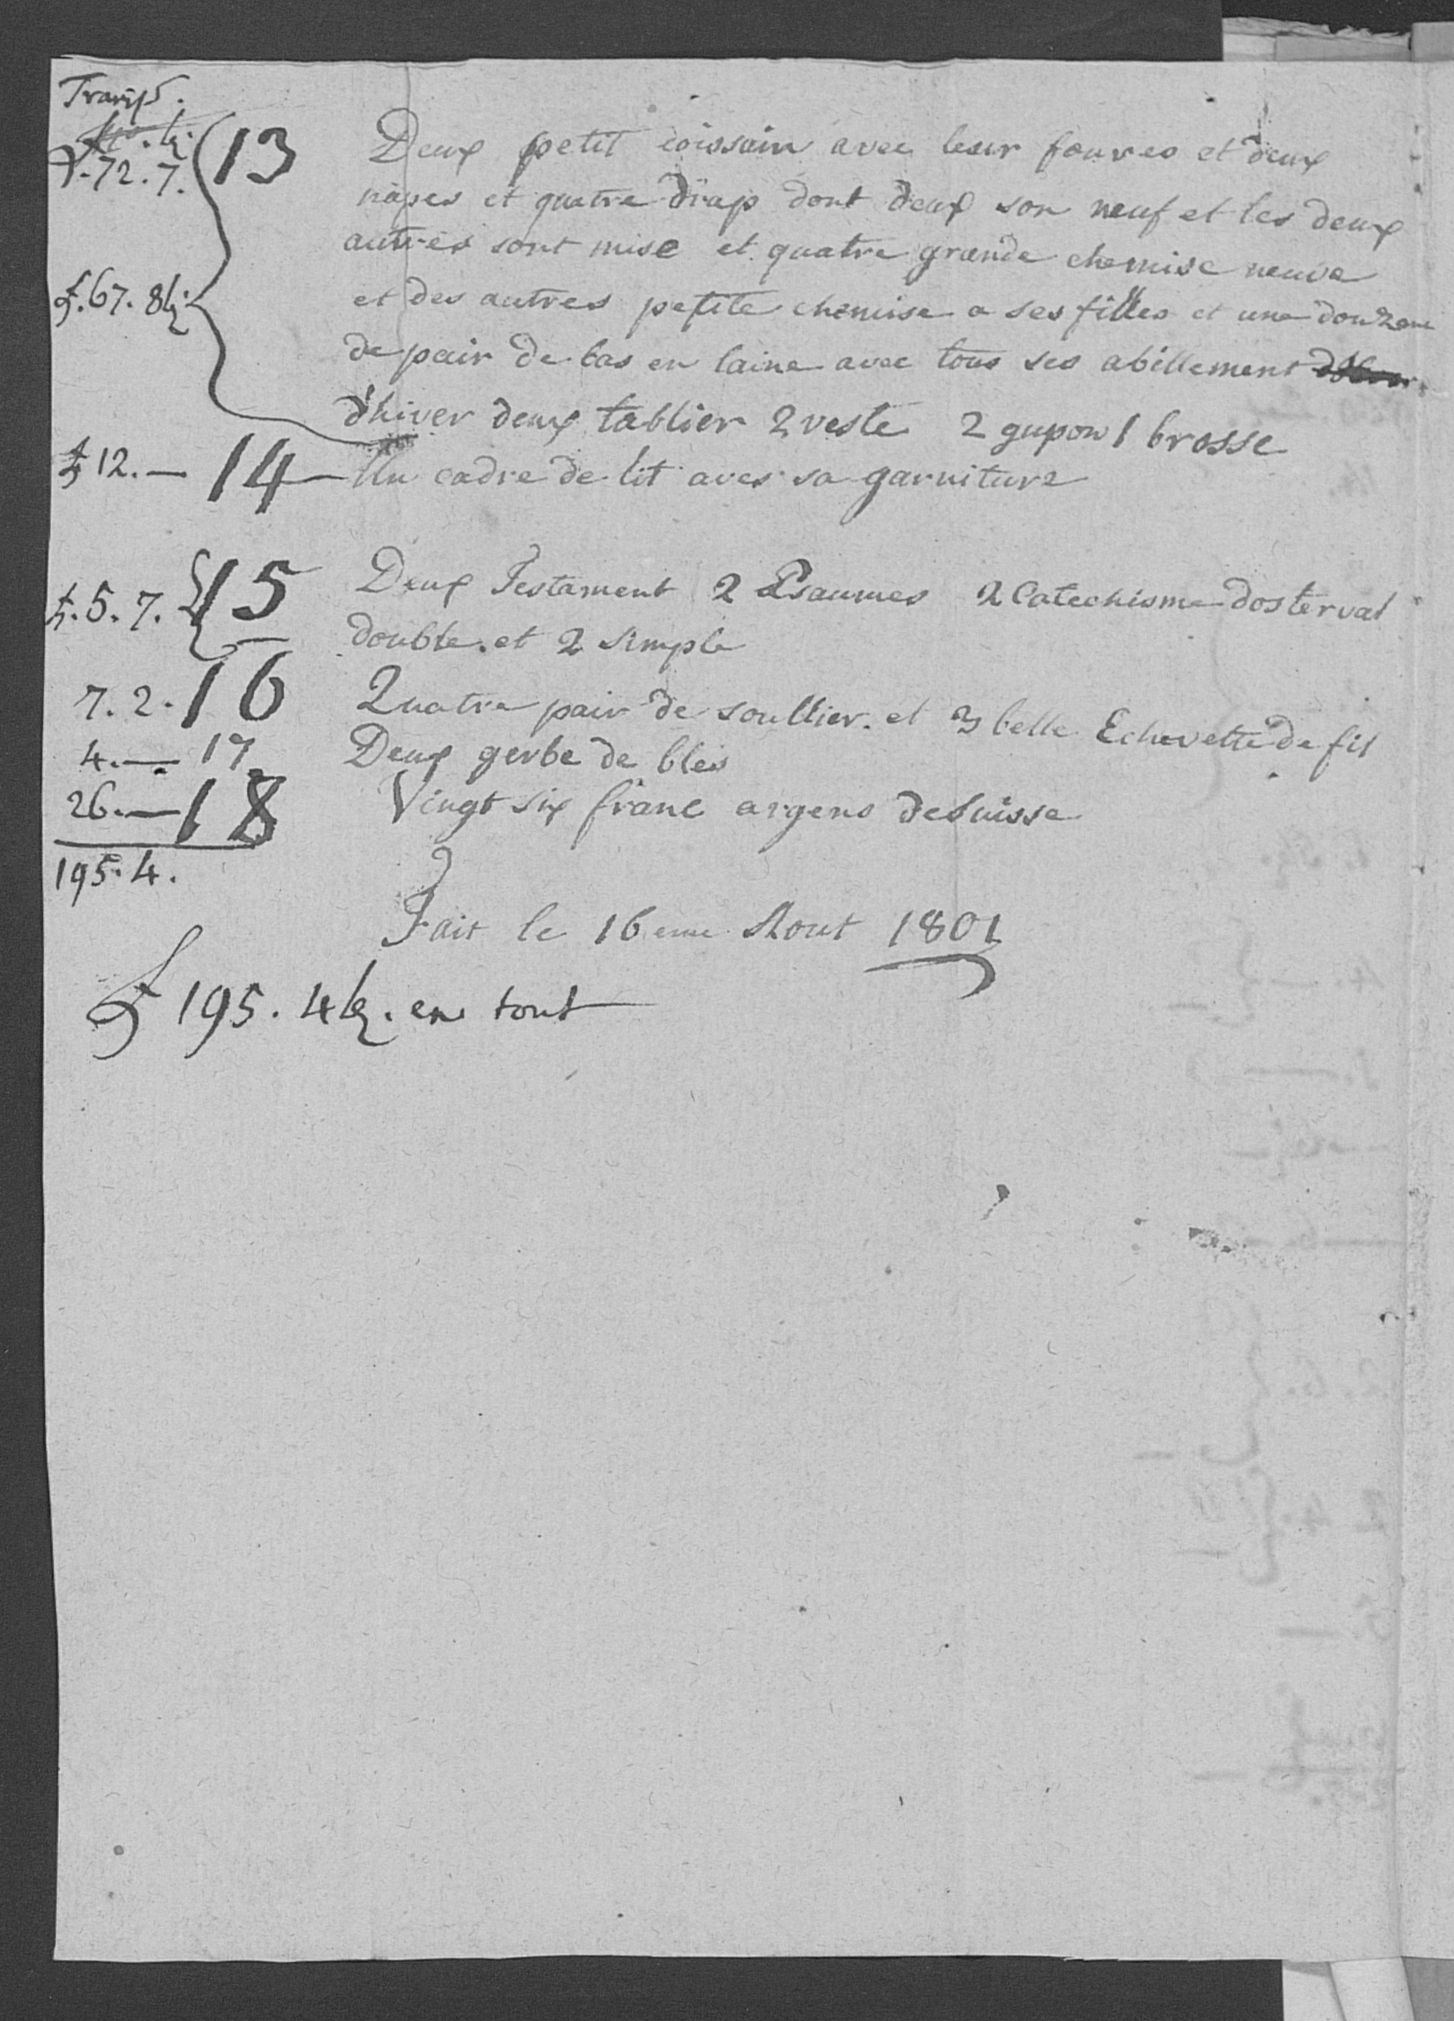 Transp.
£.72.7. 13 Deux petit coissain avec leur foures et deux
napes et quatre drap dont deux son neuf et les deux
autres sont mise et quatre grande chemise neuve
£.67.8 bz. et des autres petite chemise a ses filles et une douzene
de pair de bas en laine avec tous ses abillement
d'hiver deux tablier 2 veste 2 gupon 1 brosse
£ 12.— 14 — Un cadre de lit aves sa garniture
£.5.7. 15 Deux Testament 2 Psaumes 2 Catechisme dosterval
double. et 2 simple
7.2. 16 Quatre pair de soullier. et 3 belle Echevette de fil
4.— 17 Deux gerbe de bles
26.— 18 Vingt six franc argens de Suisse
195.4.
Fait le 16 eme Aout 1801
£ 195. 4 bz. en tout